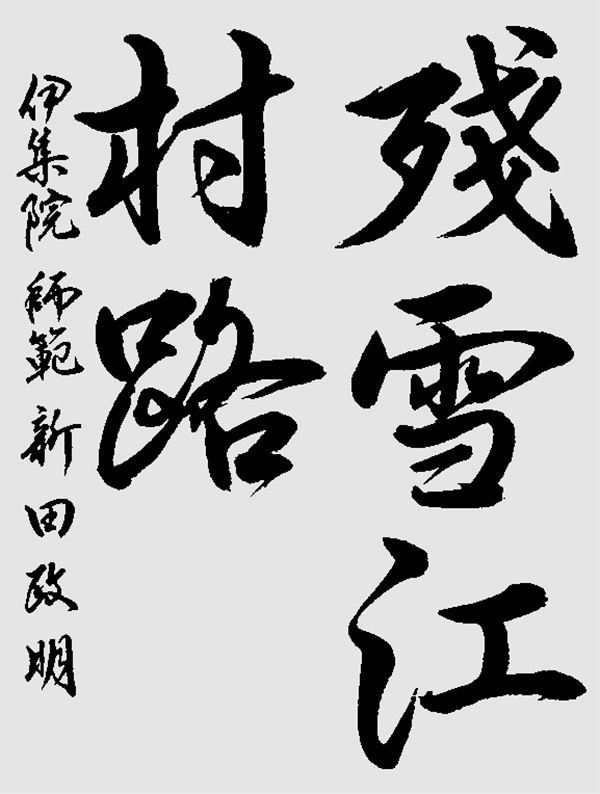 殘雪江
村路
伊集院 師範 新田政明